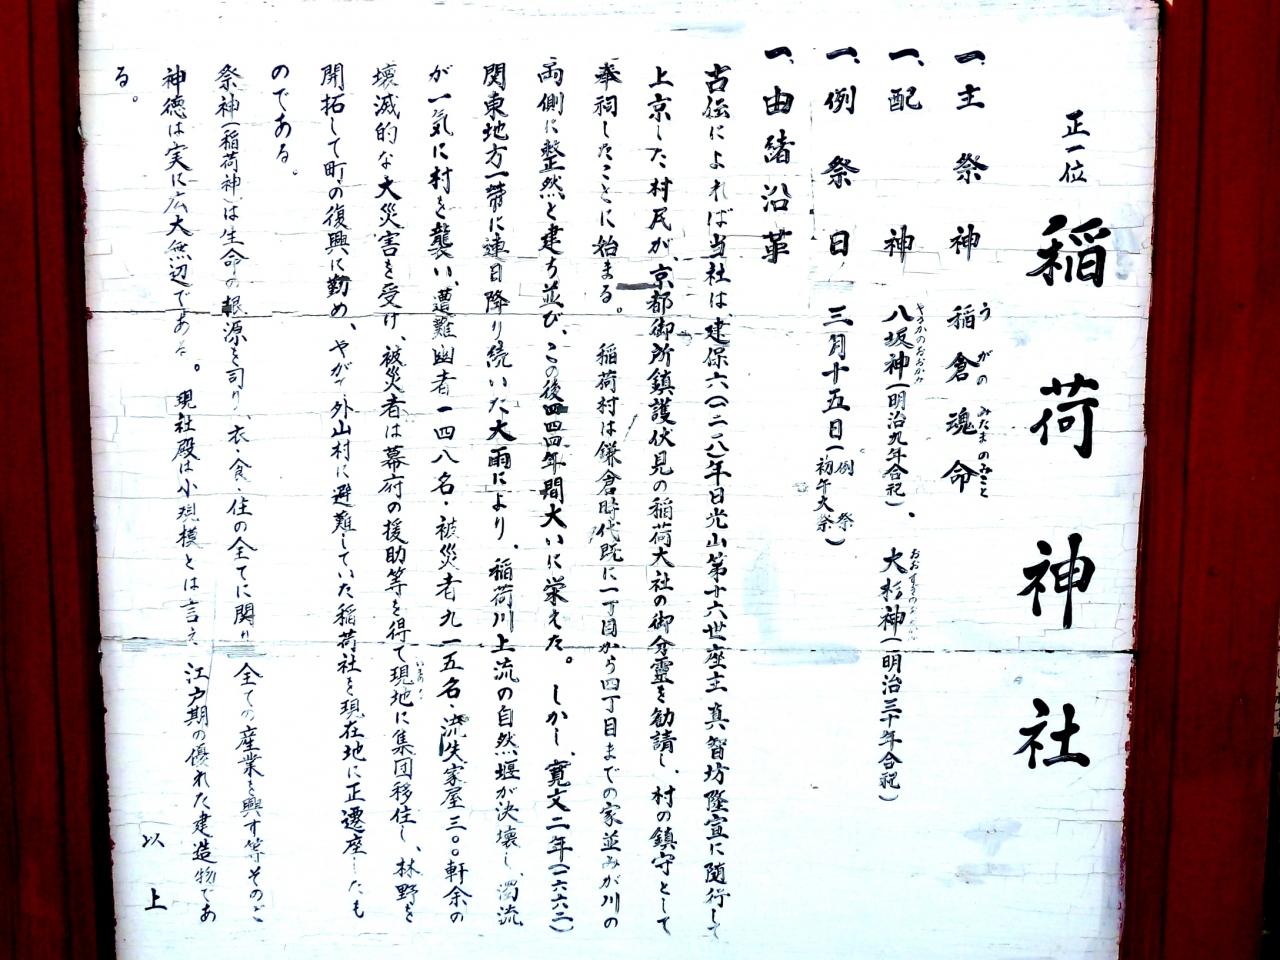 正一位
稲荷神社
一、主祭神 稲倉魂命
うがのみたまのみこと
一、配神 八坂神(明治九年合祀)、大杉神(明治三十年合祀)
やさかのおおかみ
一、例祭日 三月十五日(例祭 初午大祭)
一、由緒沿革
古伝によれば当社は、建保六(一二一八)年日光山第十六世座主真智坊隆宣に随行して
上京した村民が、京都御所鎮護伏見の稲荷大社の御分霊を勧請し、村の鎮守として
奉祠したことに始まる。 稲荷村は鎌倉時代既に一丁目から四丁目までの家並みが川の
両側に整然と建ち並び、この後四四四年間大いに栄えた。しかし、寛文二年(一六六二)
関東地方一帯に連日降り続いた大雨により、稲荷川上流の自然堰が決壊し、濁流
が一気に村を襲い、遭難幽者一四八名・被災者九一五名・流失家屋三〇〇軒余の
壊滅的な大災害を受け、被災者は幕府の援助等を得て現地に集団移住し、林野を
開拓して町の復興に勤め、やがて外山村に避難していた稲荷社を現在地に正遷座したも
のである。
祭神(稲荷神)は生命の根源を司り、衣・食・住の全てに関り 全ての産業を興す等そのご
神徳は実に広大無辺である。現社殿は小規模とは言え 江戸期の優れた建造物であ
る。
以上